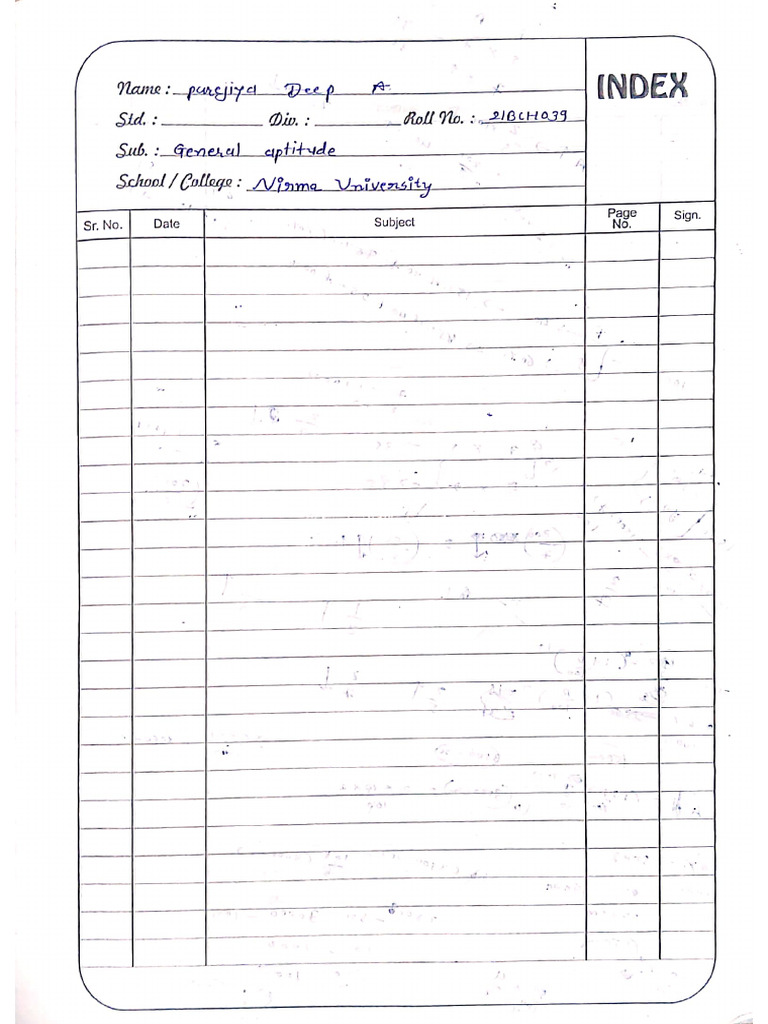 INDEX
Name : purejiya Deep A.
Std. : Div. : Roll No. : 21BCH039
Sub. : General aptitude
School / College : Nirma University
Sr. No. Date Subject Page No. Sign.